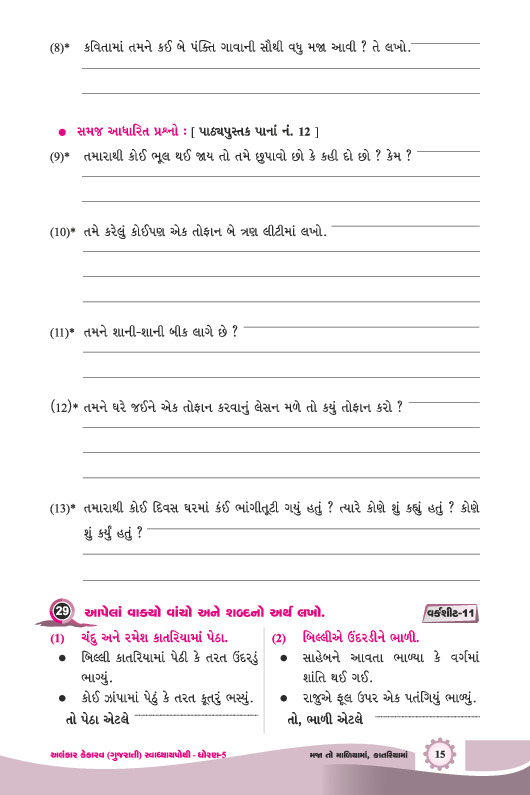 (8)* કવિતામાં તમને કઈ બે પંક્તિ ગાવાની સૌથી વધુ મજા આવી ? તે લખો.
● સમજ આધારિત પ્રશ્નો : [ પાઠ્યપુસ્તક પાનાં નં. 12 ]
(9)* તમારાથી કોઈ ભૂલ થઈ જાય તો તમે છુપાવો છો કે કહી દો છો ? કેમ ?
(10)* તમે કરેલું કોઈપણ એક તોફાન બે ત્રણ લીટીમાં લખો.
(11)* તમને શાની-શાની બીક લાગે છે ?
(12)* તમને ઘરે જઈને એક તોફાન કરવાનું લેસન મળે તો કયું તોફાન કરો ?
(13)* તમારાથી કોઈ દિવસ ઘરમાં કંઈ ભાંગીતૂટી ગયું હતું ? ત્યારે કોણે શું કહ્યું હતું ? કોણે
શું કર્યું હતું ?
29 આપેલાં વાક્યો વાંચો અને શબ્દનો અર્થ લખો. વર્કશીટ-11
(1) ચંદુ અને રમેશ કાતરિયામાં પેઠા.
● બિલ્લી કાતરિયામાં પેઠી કે તરત ઉંદરડું
ભાગ્યું.
● કોઈ ઝાંપામાં પેઠું કે તરત કૂતરું ભસ્યું.
તો પેઠા એટલે
(2) બિલ્લીએ ઉંદરડીને ભાળી.
● સાહેબને આવતા ભાળ્યા કે વર્ગમાં
શાંતિ થઈ ગઈ.
● રાજુએ ફૂલ ઉપર એક પતંગિયું ભાળ્યું.
તો, ભાળી એટલે
અલંકાર કેકારવ (ગુજરાતી) સ્વાધ્યાયપોથી - ધોરણ-5
મજા તો માળિયામાં, કાતરિયામાં 15